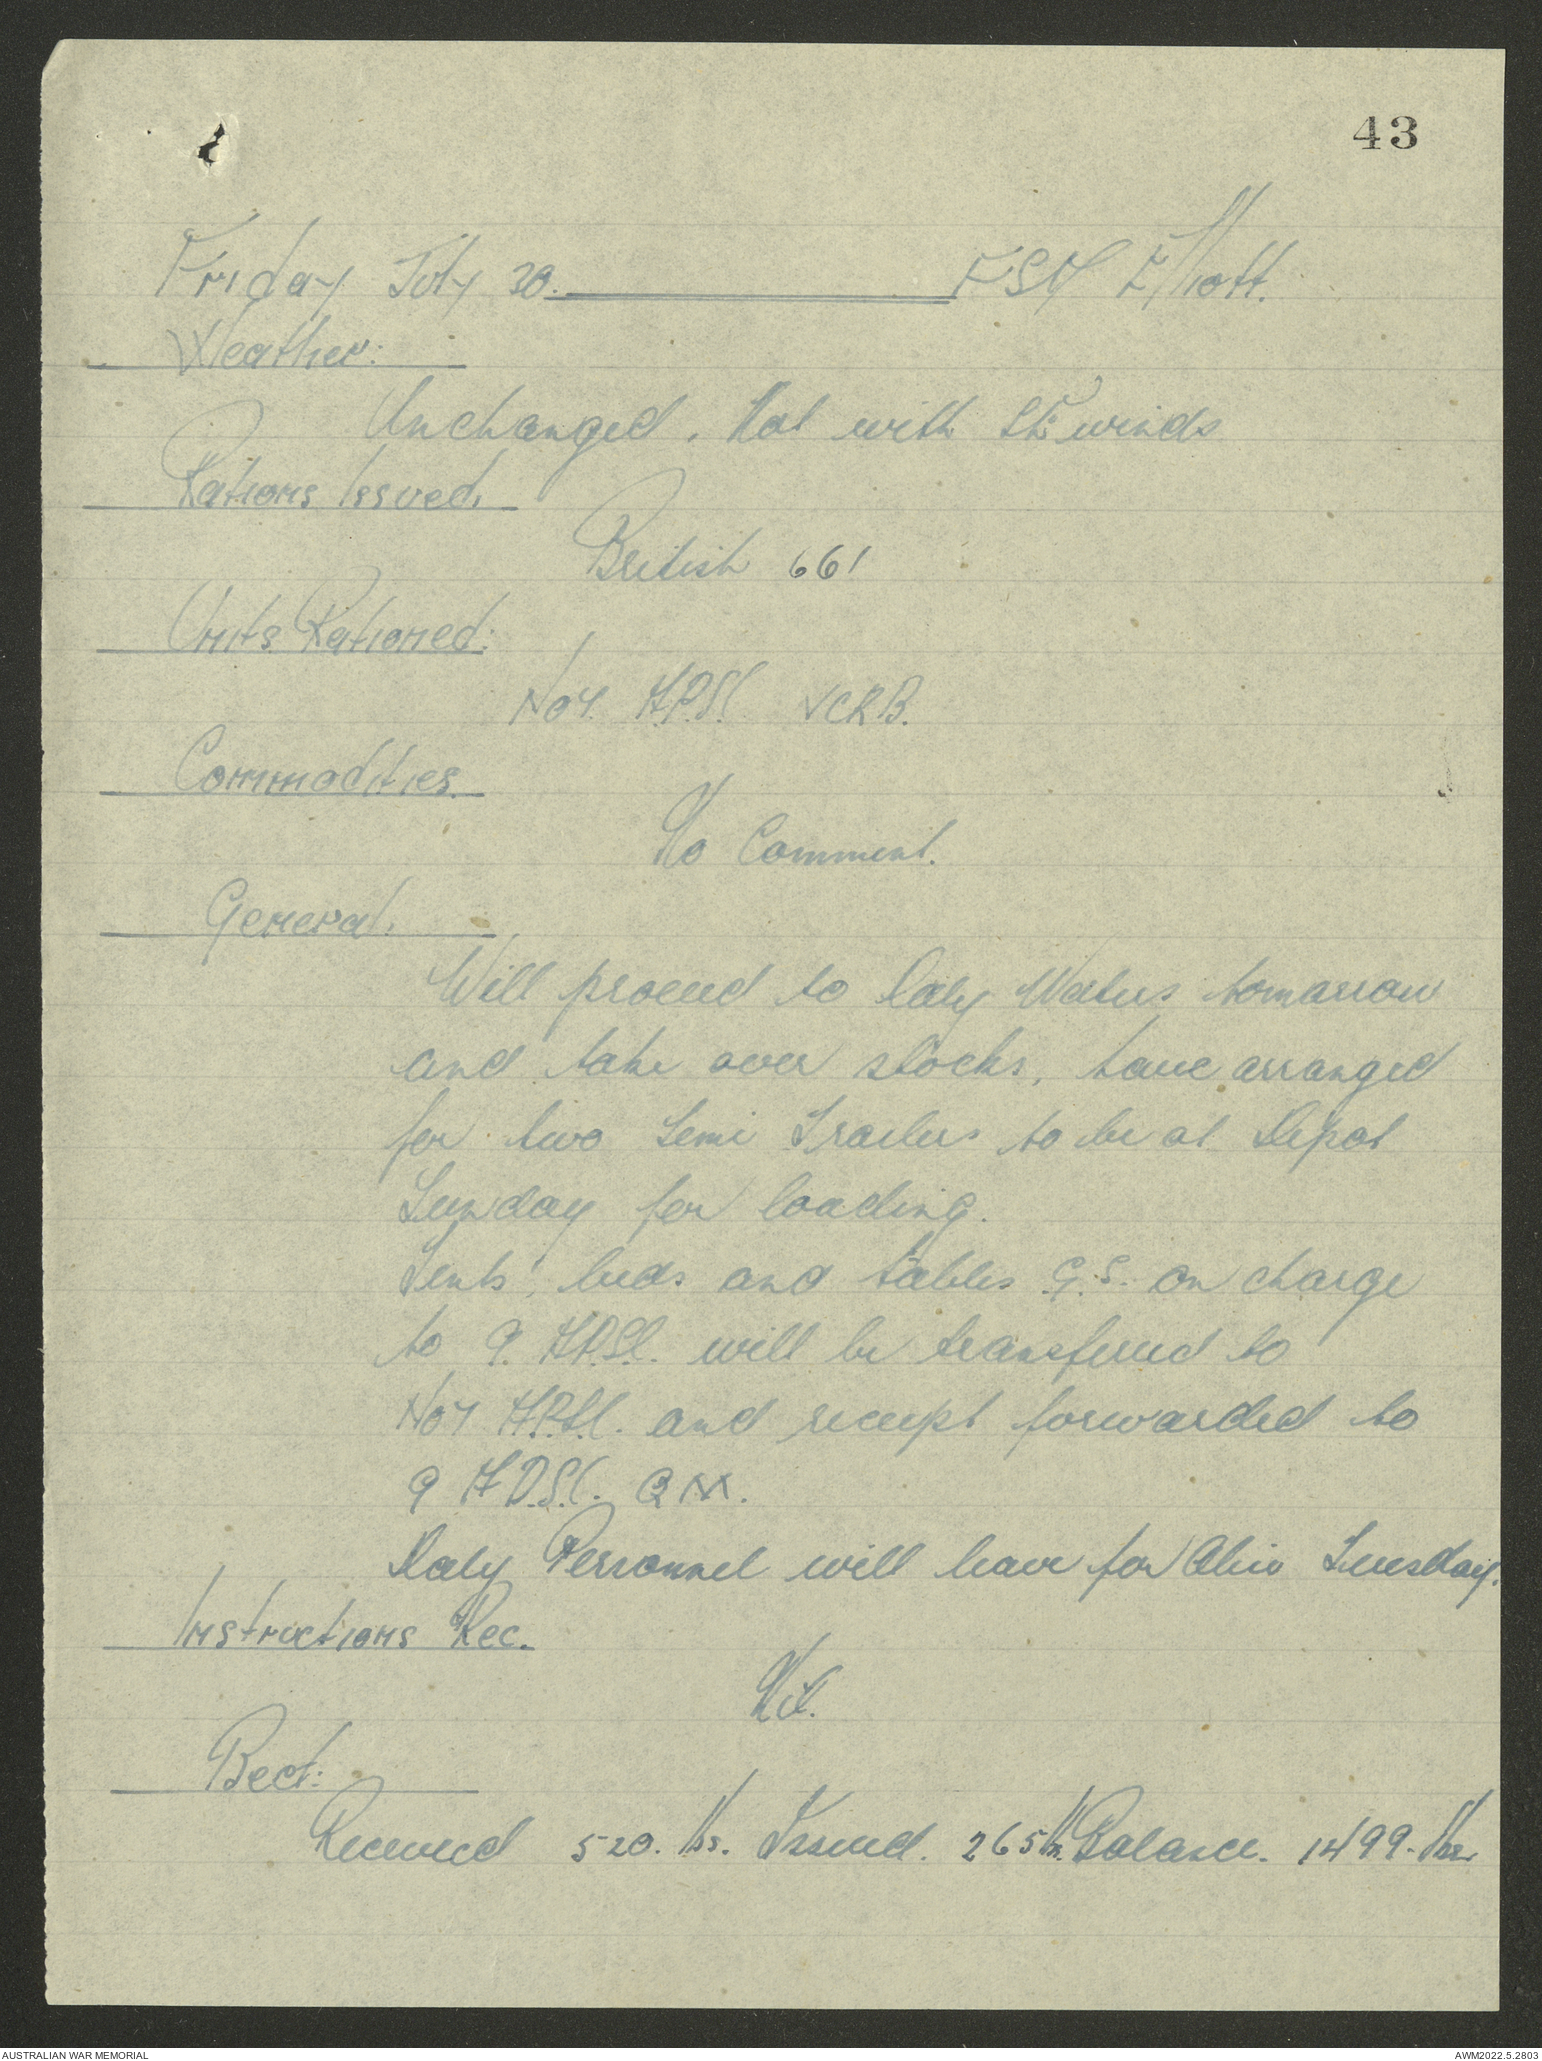 43
Friday July 20. FSD Elliott.
Weather:
Unchanged. Hot with S.E. winds
Rations Issued.
British 661
Units Rationed:
No 4. VCRB.
Commodities.
No Comment.
General.
Will proceed to Daly Waters tomorrow
and take over stocks, have arranged
for two Semi Trailers to be at Depot
Sunday for loading.
Tents, beds and tables G.S. on charge
to 9. will be transferred to
and receipt forwarded to
9 QM.
Daly Personnel will leave for Tuesday.
Instructions Rec.
Nil.
Beef:
Received 520. lbs. Issued. 265 lbs. Balance. 1499. lbs.
AUSTRALIAN WAR MEMORIAL
AWM2022.5.2803